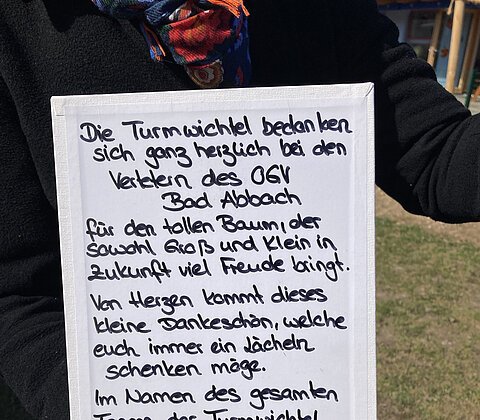 Die Turmwichtel bedanken
sich ganz herzlich bei den
Vertetern des OGV
Bad Abbach
für den tollen Baum, der
sowohl Groß und Klein in
Zukunft viel Freude bringt.
Von Herzen kommt dieses
kleine Dankeschön, welche
euch immer ein Lächeln
schenken möge.
Im Namen des gesamten
Teams der Turmwichtel